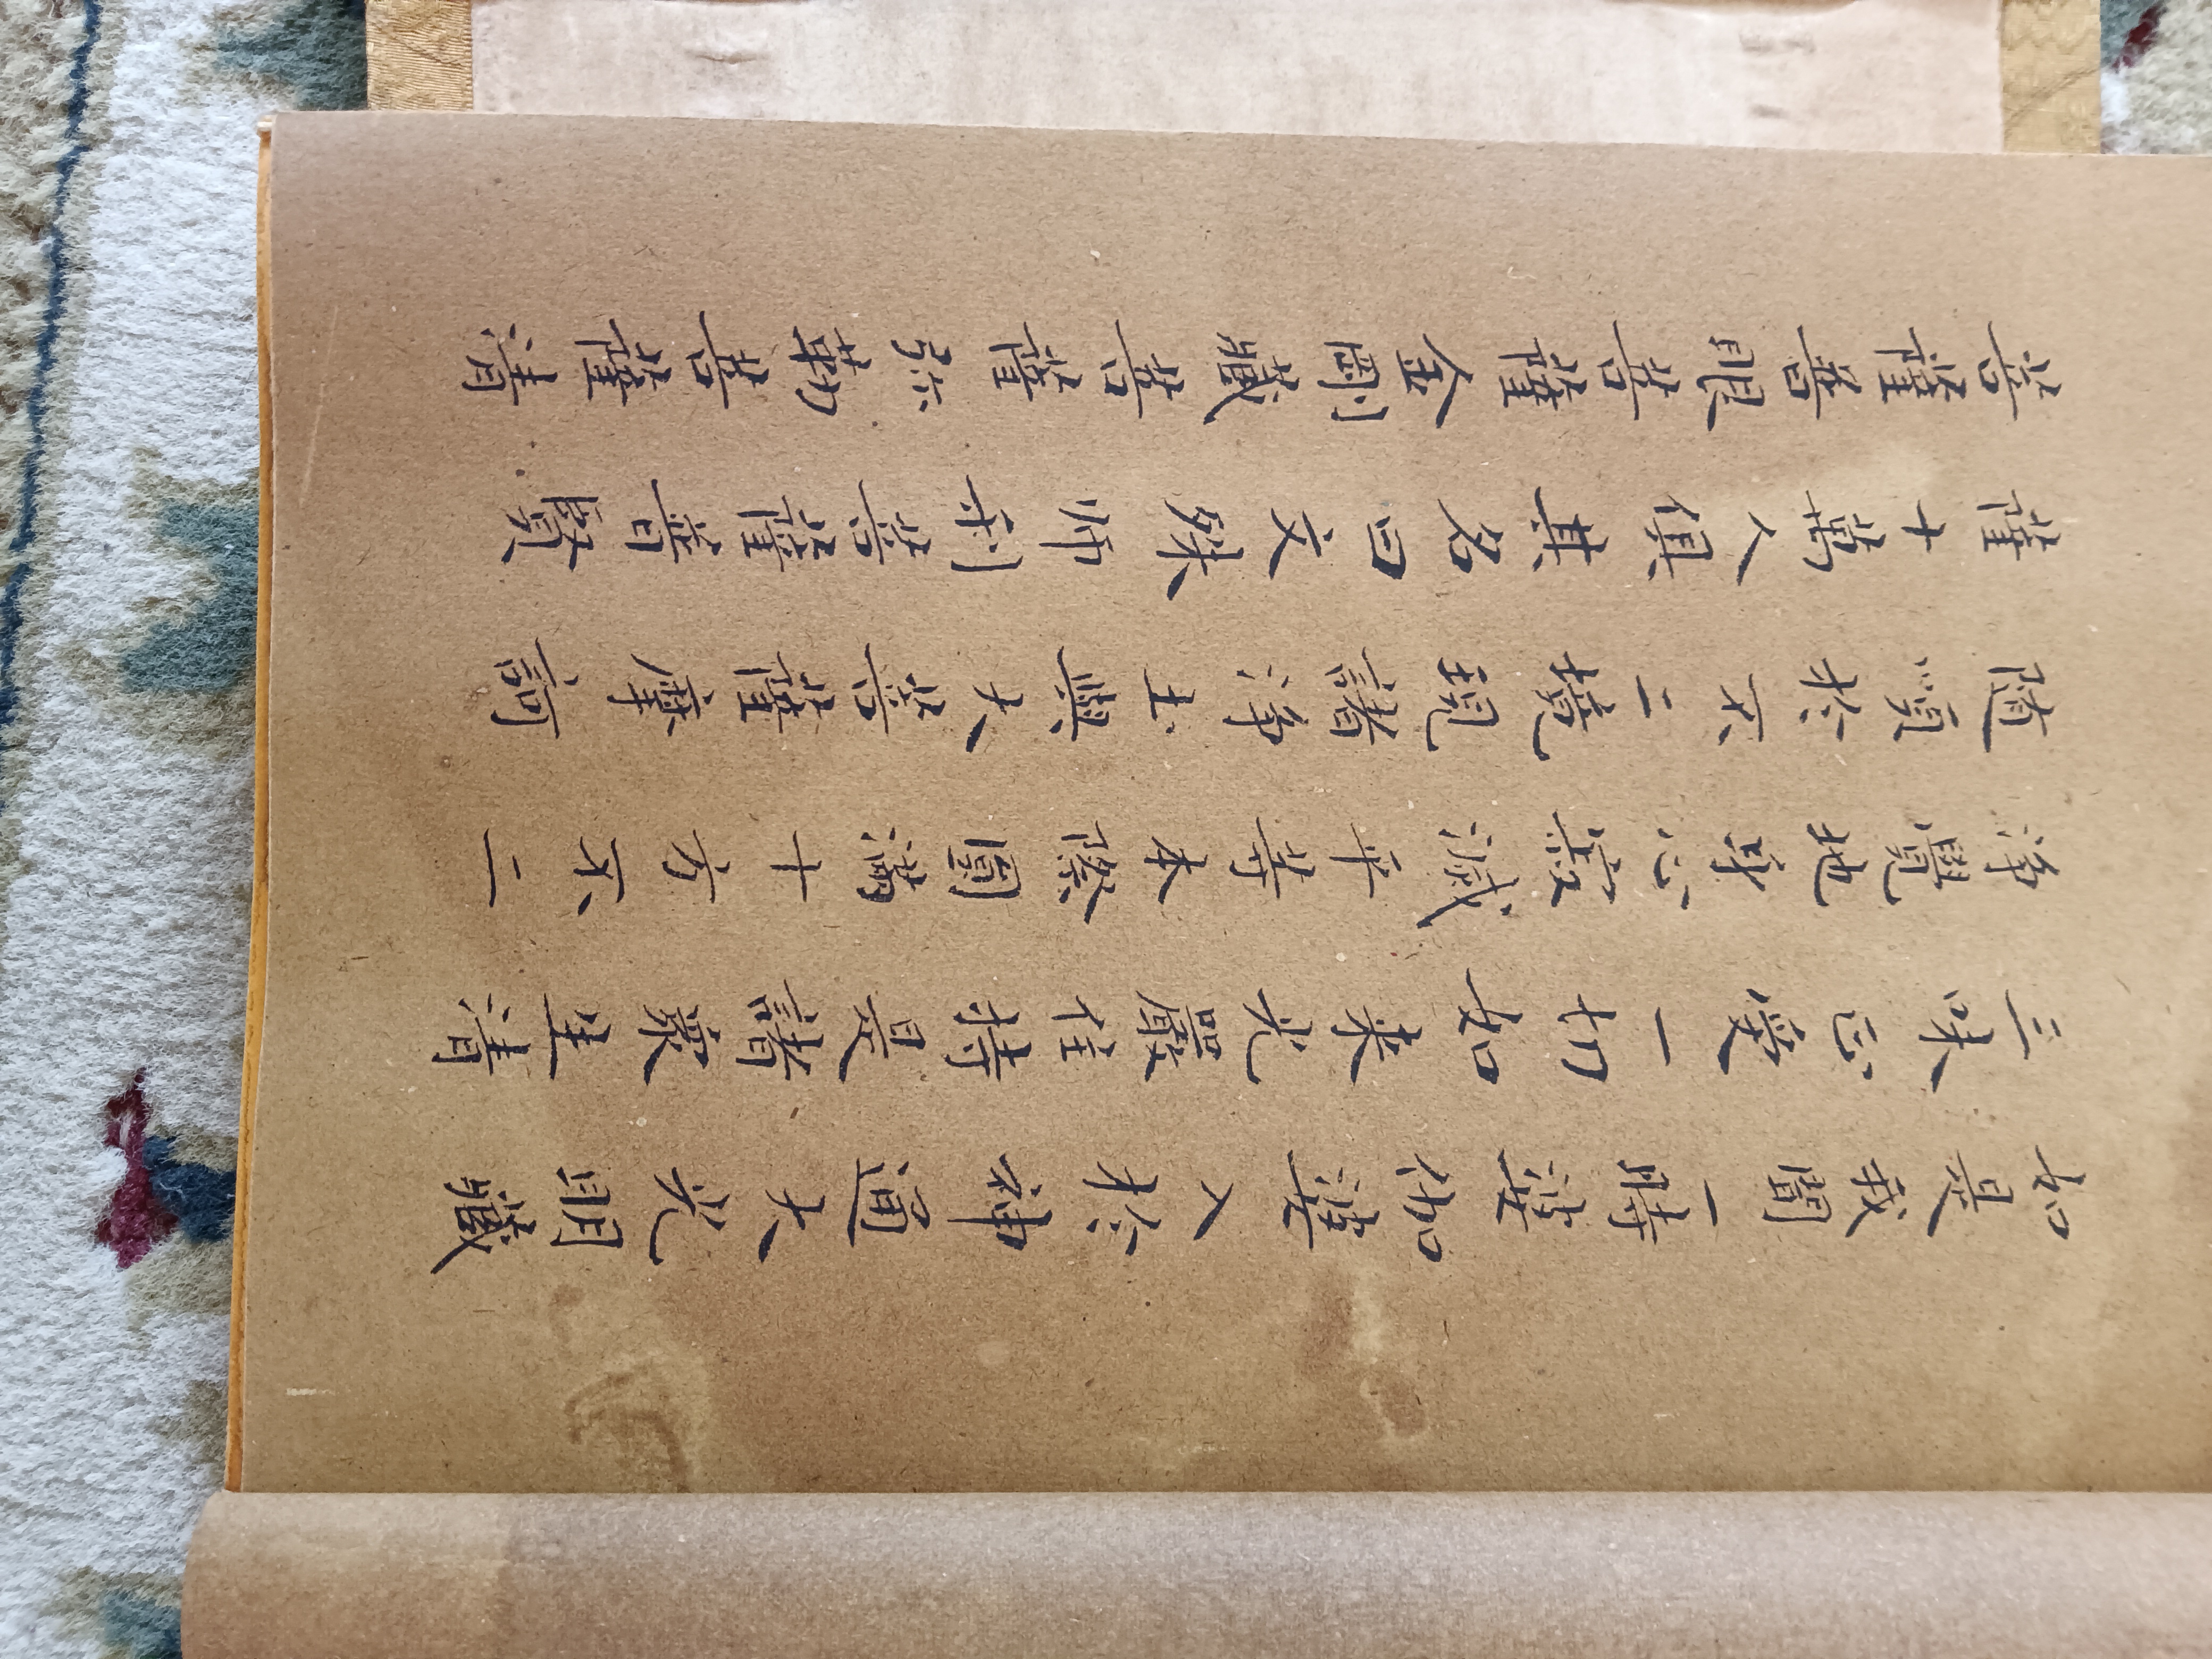 如是我聞一時婆伽婆入於神通大光明藏
三昧正受一切如來光嚴住持是諸衆生清
淨覺地身心寂滅平等本際圓滿十方不二
隨順於不二境現諸淨土與大菩薩摩訶
薩十萬人俱其名曰文殊师利菩薩普賢
菩薩普眼菩薩金剛藏菩薩弥勒菩薩清